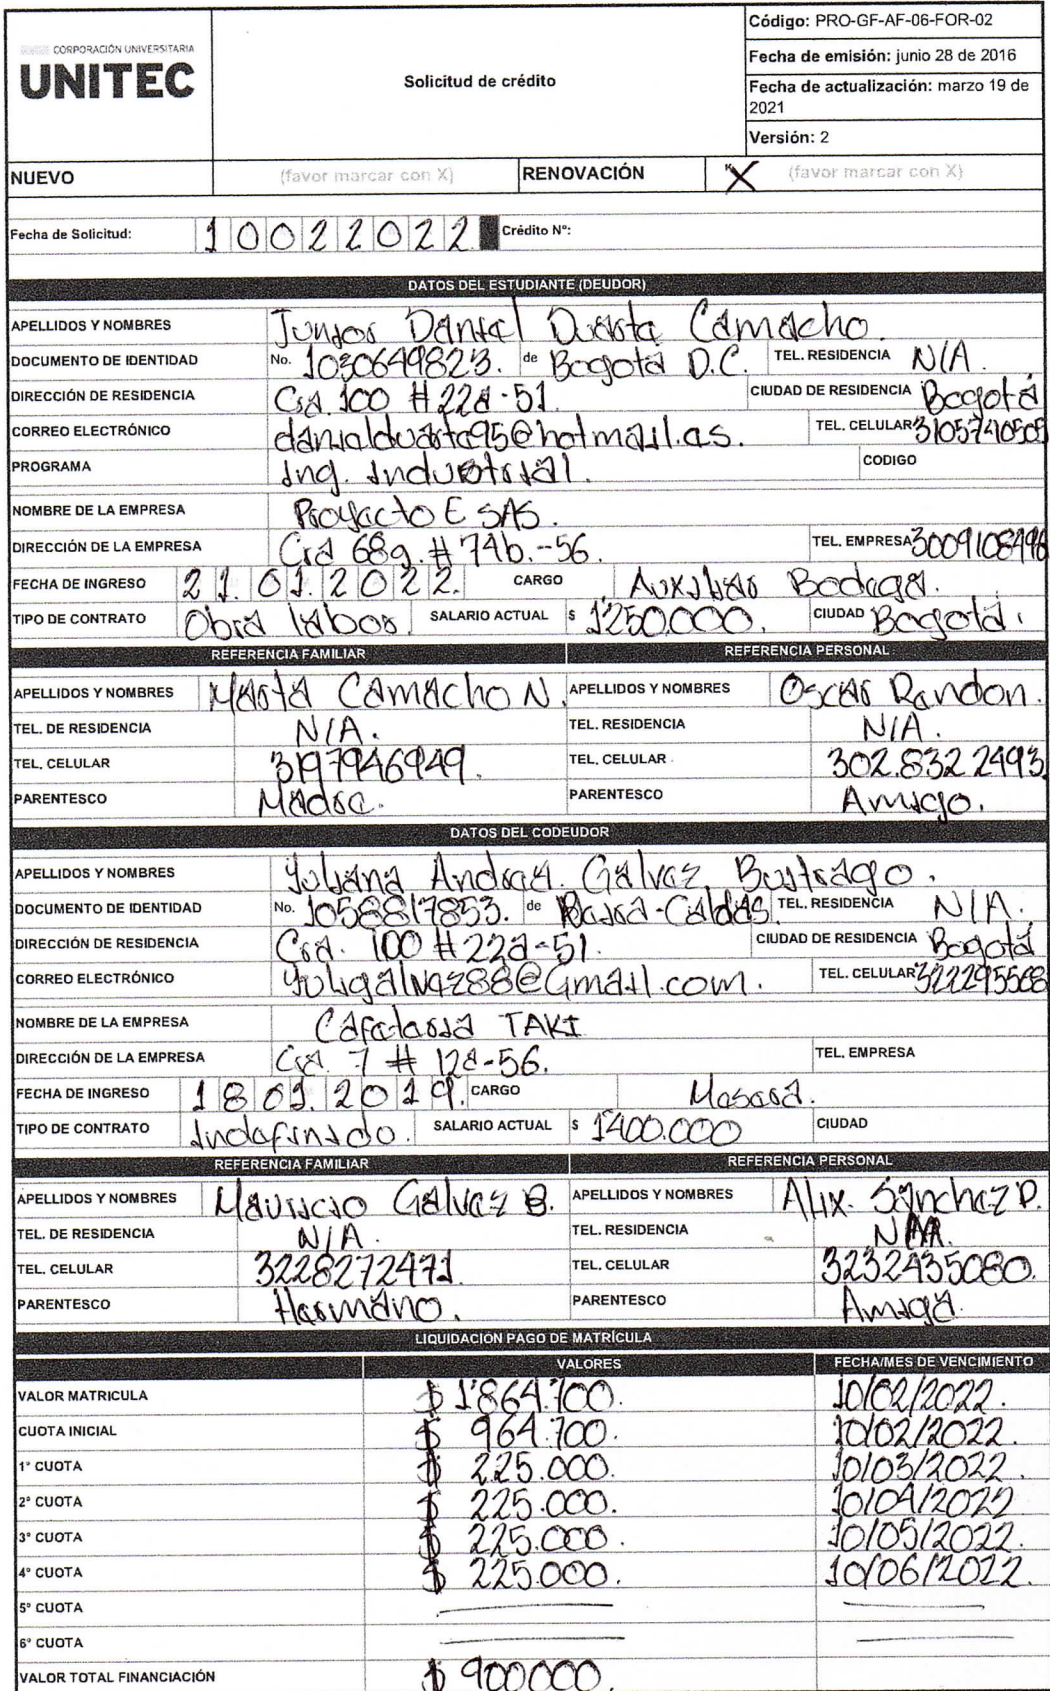 CORPORACIÓN UNIVERSITARIA
UNITEC
Solicitud de crédito
Código: PRO-GF-AF-06-FOR-02
Fecha de emisión: junio 28 de 2016
Fecha de actualización: marzo 19 de 2021
Versión: 2
NUEVO (favor marcar con X) RENOVACIÓN X (favor marcar con X)
Fecha de Solicitud: 10022022 Crédito N°:
DATOS DEL ESTUDIANTE (DEUDOR)
APELLIDOS Y NOMBRES Junior Daniel Duarte Camacho.
DOCUMENTO DE IDENTIDAD No. 1030649823. de Bogotá D.C. TEL. RESIDENCIA N/A.
DIRECCIÓN DE RESIDENCIA Cra. 100 #22a-51. CIUDAD DE RESIDENCIA Bogotá
CORREO ELECTRÓNICO danielduarte95@hotmail.es. TEL. CELULAR 3105740505
PROGRAMA Ing. Industrial. CODIGO
NOMBRE DE LA EMPRESA Proyecto E SAS.
DIRECCIÓN DE LA EMPRESA Cra 68g. # 74b.-56. TEL. EMPRESA 3009108496
FECHA DE INGRESO 21.01.2022. CARGO Auxiliar Bodega.
TIPO DE CONTRATO Obra labor. SALARIO ACTUAL $ 1'250.000. CIUDAD Bogotá.
REFERENCIA FAMILIAR REFERENCIA PERSONAL
APELLIDOS Y NOMBRES Marta Camacho N. APELLIDOS Y NOMBRES Oscar Rendon.
TEL. DE RESIDENCIA N/A. TEL. RESIDENCIA N/A.
TEL. CELULAR 3197946949. TEL. CELULAR 302.832 2493
PARENTESCO Madre. PARENTESCO Amigo.
DATOS DEL CODEUDOR
APELLIDOS Y NOMBRES Yuliana Andrea. Galvez Buitrago.
DOCUMENTO DE IDENTIDAD No. 1058817853. de -Caldas. TEL. RESIDENCIA N/A.
DIRECCIÓN DE RESIDENCIA Cra. 100 #22a-51. CIUDAD DE RESIDENCIA Bogotá
CORREO ELECTRÓNICO yuligalvez88@Gmail.com. TEL. CELULAR 322295568
NOMBRE DE LA EMPRESA Cafeteria TAKI
DIRECCIÓN DE LA EMPRESA Cra 7 # 12a-56. TEL. EMPRESA
FECHA DE INGRESO 18 01.2019. CARGO Mesera.
TIPO DE CONTRATO Indefinido. SALARIO ACTUAL $ 1'400.000 CIUDAD
REFERENCIA FAMILIAR REFERENCIA PERSONAL
APELLIDOS Y NOMBRES Mauricio Galvez B. APELLIDOS Y NOMBRES Alix. Sanchez P.
TEL. DE RESIDENCIA N/A. TEL. RESIDENCIA N/A.
TEL. CELULAR 3228272471. TEL. CELULAR 3232435080.
PARENTESCO Hermano. PARENTESCO Amiga.
LIQUIDACIÓN PAGO DE MATRÍCULA
VALORES FECHA/MES DE VENCIMIENTO
VALOR MATRICULA $ 1'864.700. 10/02/2022.
CUOTA INICIAL $ 964.700. 10/02/2022.
1° CUOTA $ 225.000. 10/03/2022.
2° CUOTA $ 225.000. 10/04/2022
3° CUOTA $ 225.000. 10/05/2022.
4° CUOTA $ 225.000. 10/06/2022.
5° CUOTA
6° CUOTA
VALOR TOTAL FINANCIACIÓN $ 900000.